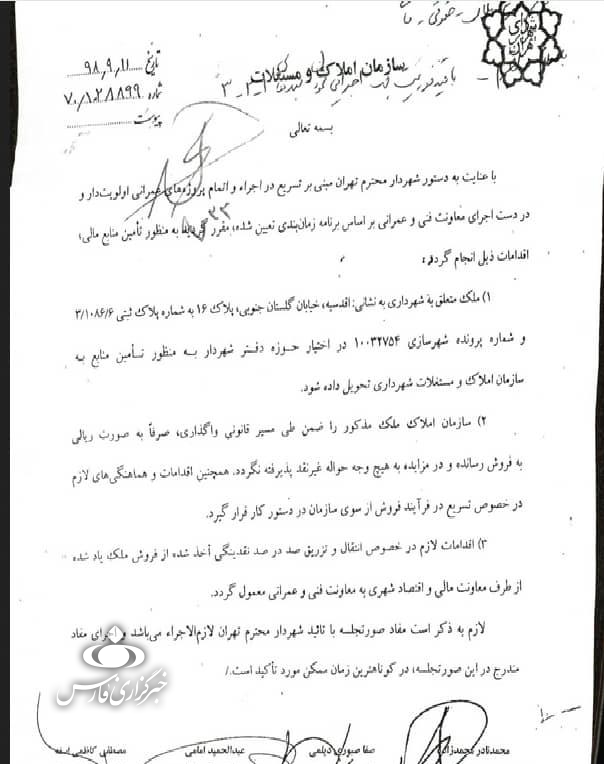 شهرداری تهران
سازمان املاک و مستغلات
تاریخ ۹۸,۹,۱۱
شماره ۷۰/۱۰۲۸۸۹۹
پیوست
بسمه تعالی
با عنایت به دستور شهردار محترم تهران مبنی بر تسریع در اجراء و اتمام پروژه‌های عمرانی اولویت‌دار و
در دست اجرای معاونت فنی و عمرانی بر اساس برنامه زمان‌بندی تعیین شده، مقرر گردید به منظور تأمین منابع مالی،
اقدامات ذیل انجام گردد:
۱) ملک متعلق به شهرداری به نشانی: اقدسیه، خیابان گلستان جنوبی، پلاک ۱۶ به شماره پلاک ثبتی ۳/۱۰۸۶/۶
و شماره پرونده شهرسازی ۱۰۰۳۲۷۵۴ در اختیار حوزه دفتر شهردار به منظور تأمین منابع به
سازمان املاک و مستغلات شهرداری تحویل داده شود.
۲) سازمان املاک ملک مذکور را ضمن طی مسیر قانونی واگذاری، صرفاً به صورت ریالی
به فروش رسانده و در مزایده به هیچ وجه حواله غیرنقد پذیرفته نگردد. همچنین اقدامات و هماهنگی‌های لازم
در خصوص تسریع در فرآیند فروش از سوی سازمان در دستور کار قرار گیرد.
۳) اقدامات لازم در خصوص انتقال و تزریق صد در صد نقدینگی أخذ شده از فروش ملک یاد شده
از طرف معاونت مالی و اقتصاد شهری به معاونت فنی و عمرانی معمول گردد.
لازم به ذکر است مفاد صورتجلسه با تائید شهردار محترم تهران لازم‌الاجراء می‌باشد و اجرای مفاد
مندرج در این صورتجلسه، در کوتاهترین زمان ممکن مورد تأکید است./
خبرگزاری فارس
محمدنادر محمدزاده صفا صبوری دیلمی عبدالحمید امامی مصطفی کاظمی